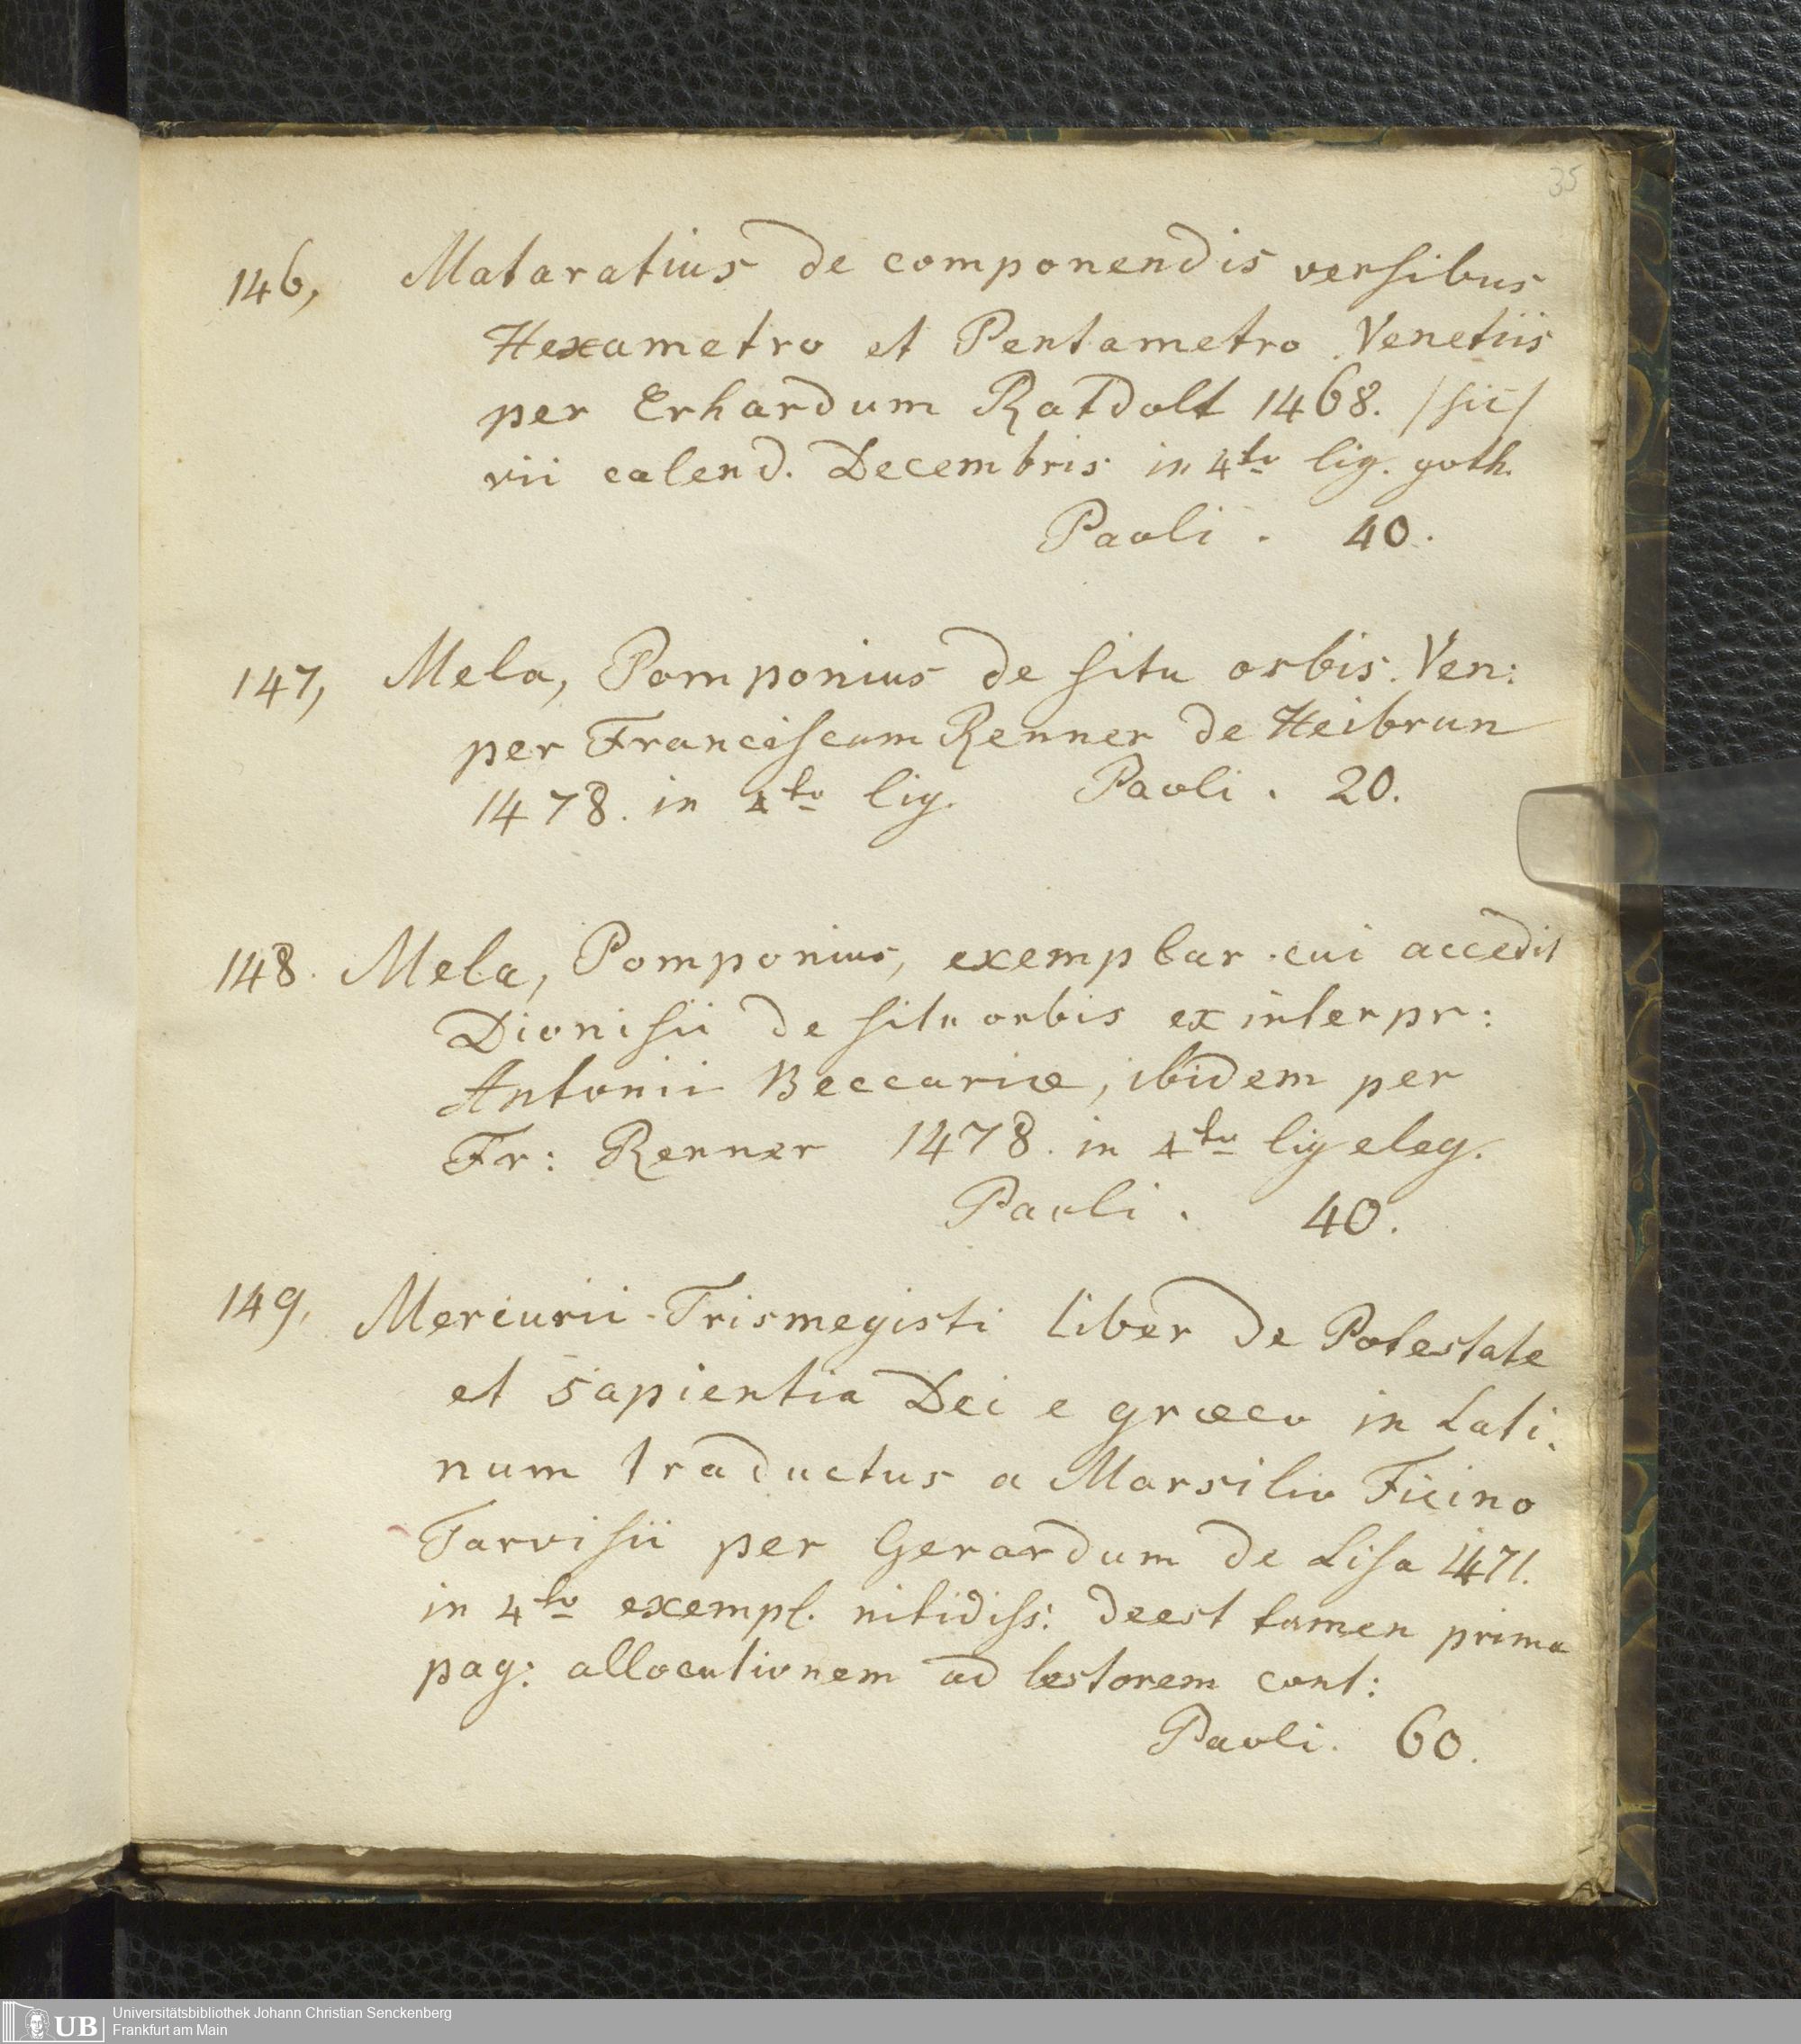 35
146, Mataratius de componendis versibus
Hexametro et Pentametro Venetiis
per Erhardum Ratdolt 1468. /sic/
vii calend. Decembris in 4to lig. goth.
Paoli . 40.
147, Mela, Pomponius de situ orbis. Ven:
per Franciscum Renner de Heibrun
1478. in 4to lig. Paoli . 20.
148. Mela, Pomponius, exemplar cui accedit
Dionisii de situ orbis ex interpr:
Antonii Beccariæ, ibidem per
Fr: Renner 1478. in 4to lig eleg.
Paoli . 40.
149, Mercurii Trismegisti liber de Potestate
et Sapientia Dei e græco in Lati-
num traductus a Marsilio Ficino
Tarvisii per Gerardum de Lisa 1471.
in 4to exempl. nitidiss: deest tamen prima
pag: allocutionem ad lectorem cont:
Paoli. 60.
UB Universitätsbibliothek Johann Christian Senckenberg
Frankfurt am Main